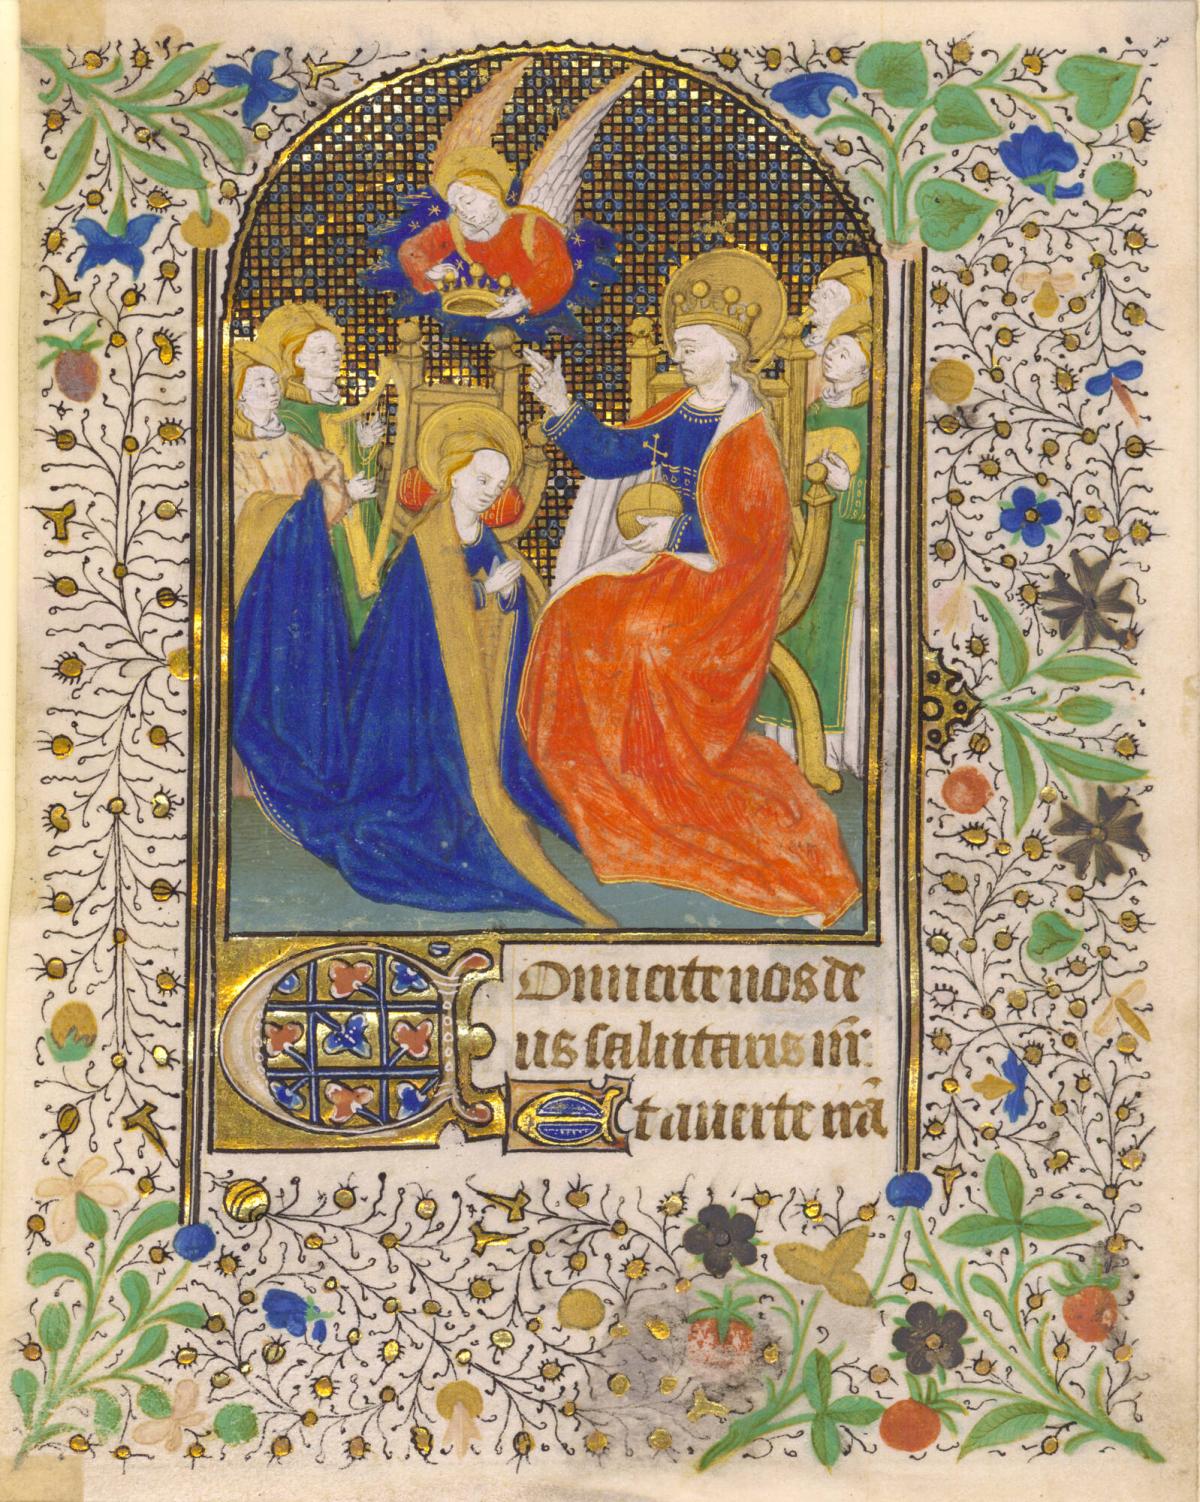 Conuerte nos de
us salutaris nr̄:
Et auerte irā